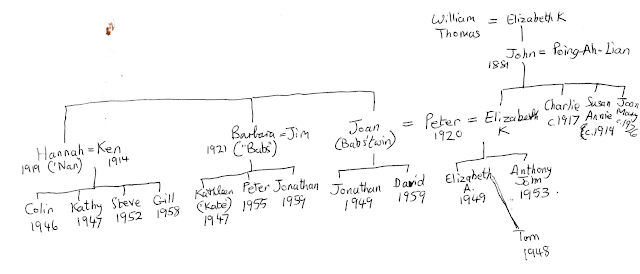 William = Elizabeth K
Thomas
John = Poing-Ah-Lian
1881
Hannah = Ken
1919 ('Nan) 1914
Barbara = Jim
1921 ("Babs")
Joan
(Babs' twin)
= Peter = Elizabeth
1920 K
Charlie
c.1917
Susan
Annie
c.1914
Joan
Mary
Colin
1946
Kathy
1947
Steve
1952
Gill
1958
Kathleen
('Kate)
1947
Peter
1955
Jonathan
1959
Jonathan
1949
David
1959
Elizabeth
A.
1949
Anthony
John
1953.
Tom
1948